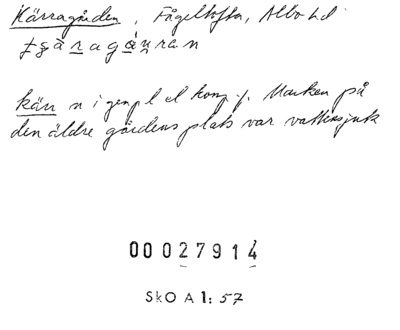 Kärragården, Fågeltofta, Albo hd
kärr n i gen pl el komp.f. Marken på
den äldre gårdens plats var vattensjuk
00027914
SkO A 1:57